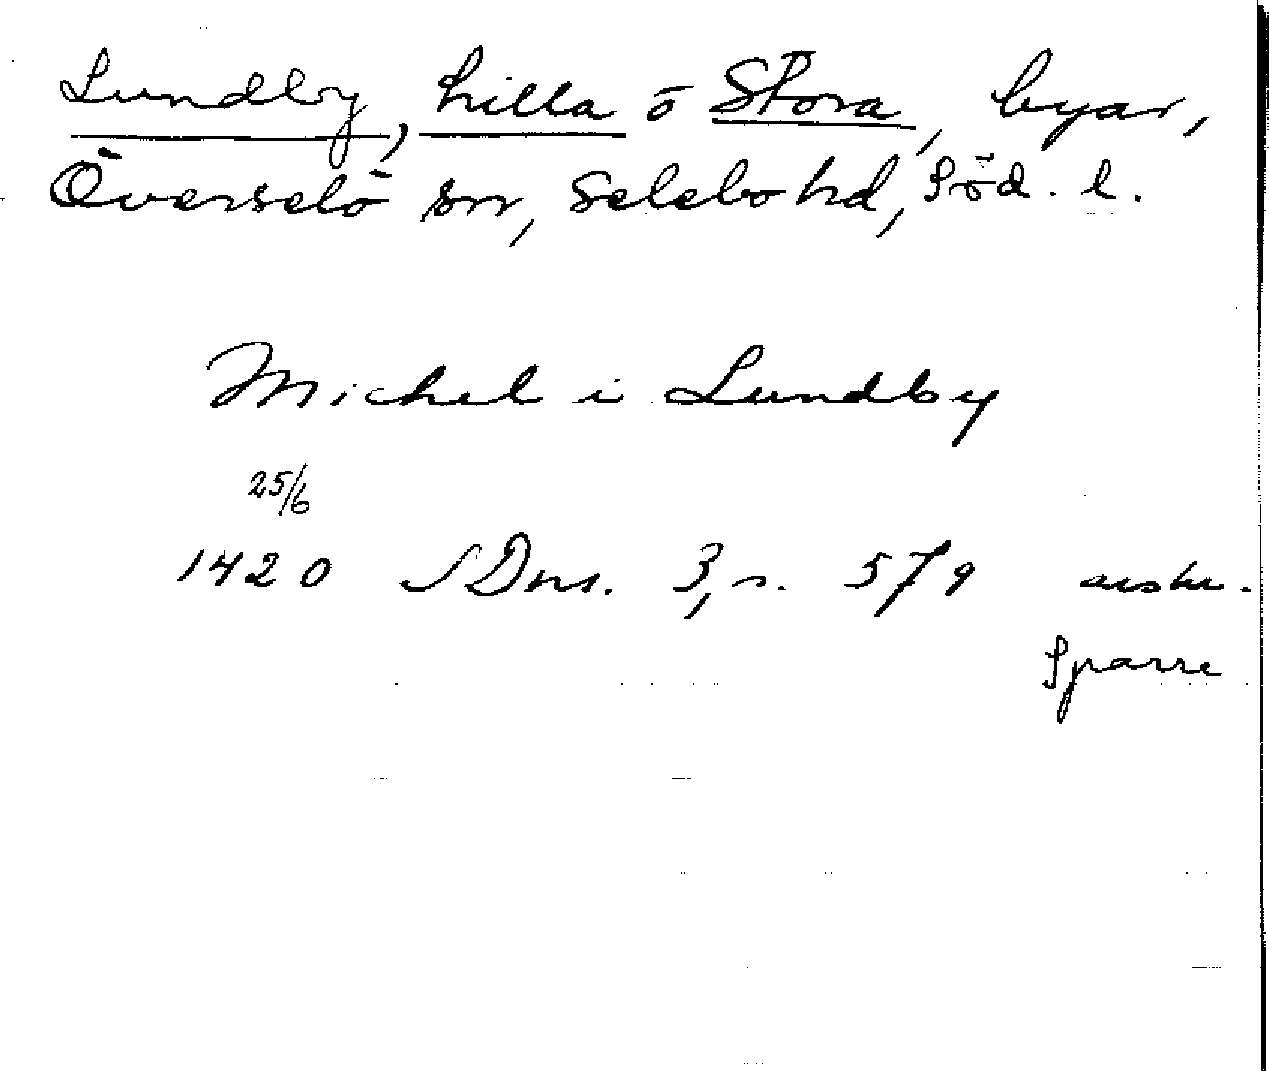 Lundby, Lilla o Stora, byar,
Överselö sn, Selebo hd, Söd. l.
Michel i Lundby
25/6
1420 SDns. 3, s. 579
Sparre